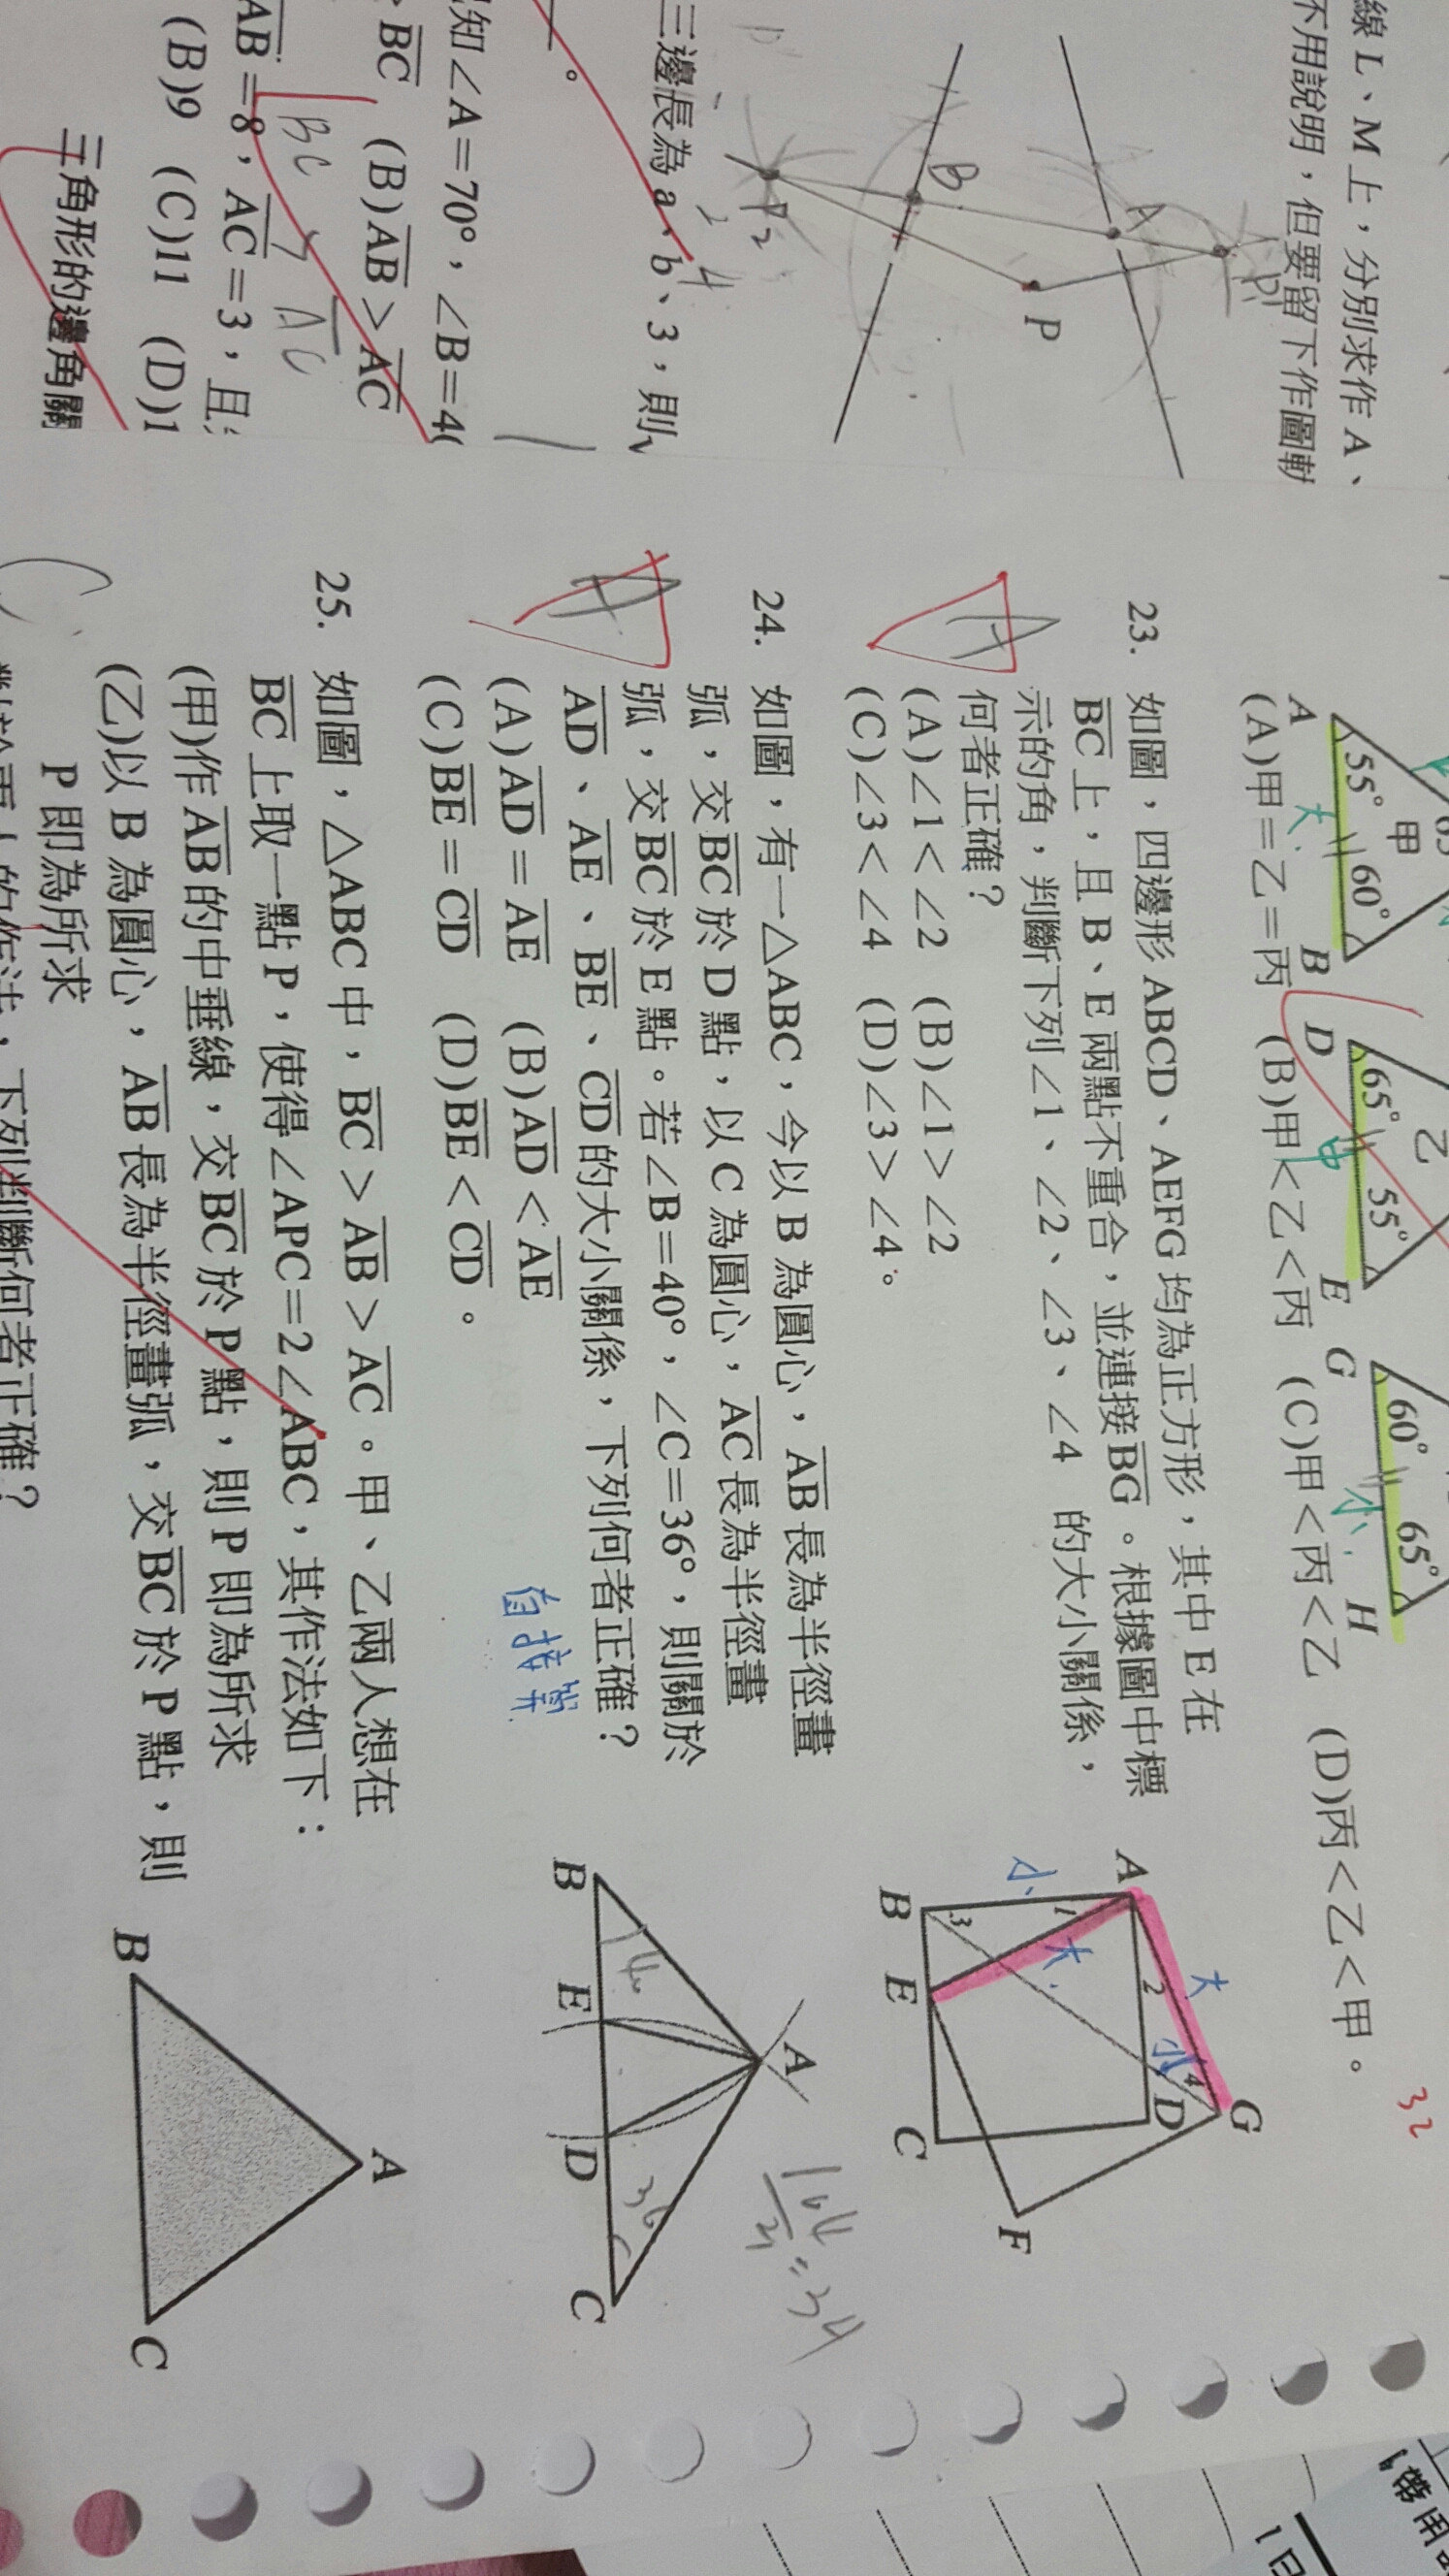 線 L、M 上，分別求作 A、
不用說明，但要留下作圖軌
P₁
A
P
B
P₂
三邊長為 a、b、3，則
2
4
。
知∠A＝70°，∠B＝4
BC (B)AB＞AC
BC > AC
AB＝8，AC＝3，且
(B)9 (C)11 (D)1
三角形的邊角關
甲 乙
55° 60° 65° 55° 60° 65°
大 中 小
A B D E G H
(A)甲＝乙＝丙 (B)甲＜乙＜丙 (C)甲＜丙＜乙 (D)丙＜乙＜甲。
32
A
23. 如圖，四邊形 ABCD、AEFG 均為正方形，其中 E 在
BC上，且 B、E 兩點不重合，並連接BG。根據圖中標
示的角，判斷下列∠1、∠2、∠3、∠4 的大小關係，
何者正確？
(A)∠1＜∠2 (B)∠1＞∠2
(C)∠3＜∠4 (D)∠3＞∠4。
A G
大
小 1 2 小 4 D
大
3
B E C F
A
24. 如圖，有一△ABC，今以 B 為圓心，AB長為半徑畫
弧，交BC於 D 點，以 C 為圓心，AC長為半徑畫
弧，交BC於 E 點。若∠B＝40°，∠C＝36°，則關於
AD、AE、BE、CD的大小關係，下列何者正確？
(A)AD＝AE (B)AD＜AE
(C)BE＝CD (D)BE＜CD。
A
36
B E D C
C
25. 如圖，△ABC 中，BC＞AB＞AC。甲、乙兩人想在
BC上取一點 P，使得∠APC＝2∠ABC，其作法如下：
(甲)作AB的中垂線，交BC於 P 點，則 P 即為所求
(乙)以 B 為圓心，AB長為半徑畫弧，交BC於 P 點，則
P 即為所求
下列判斷何者正確？
A
B C